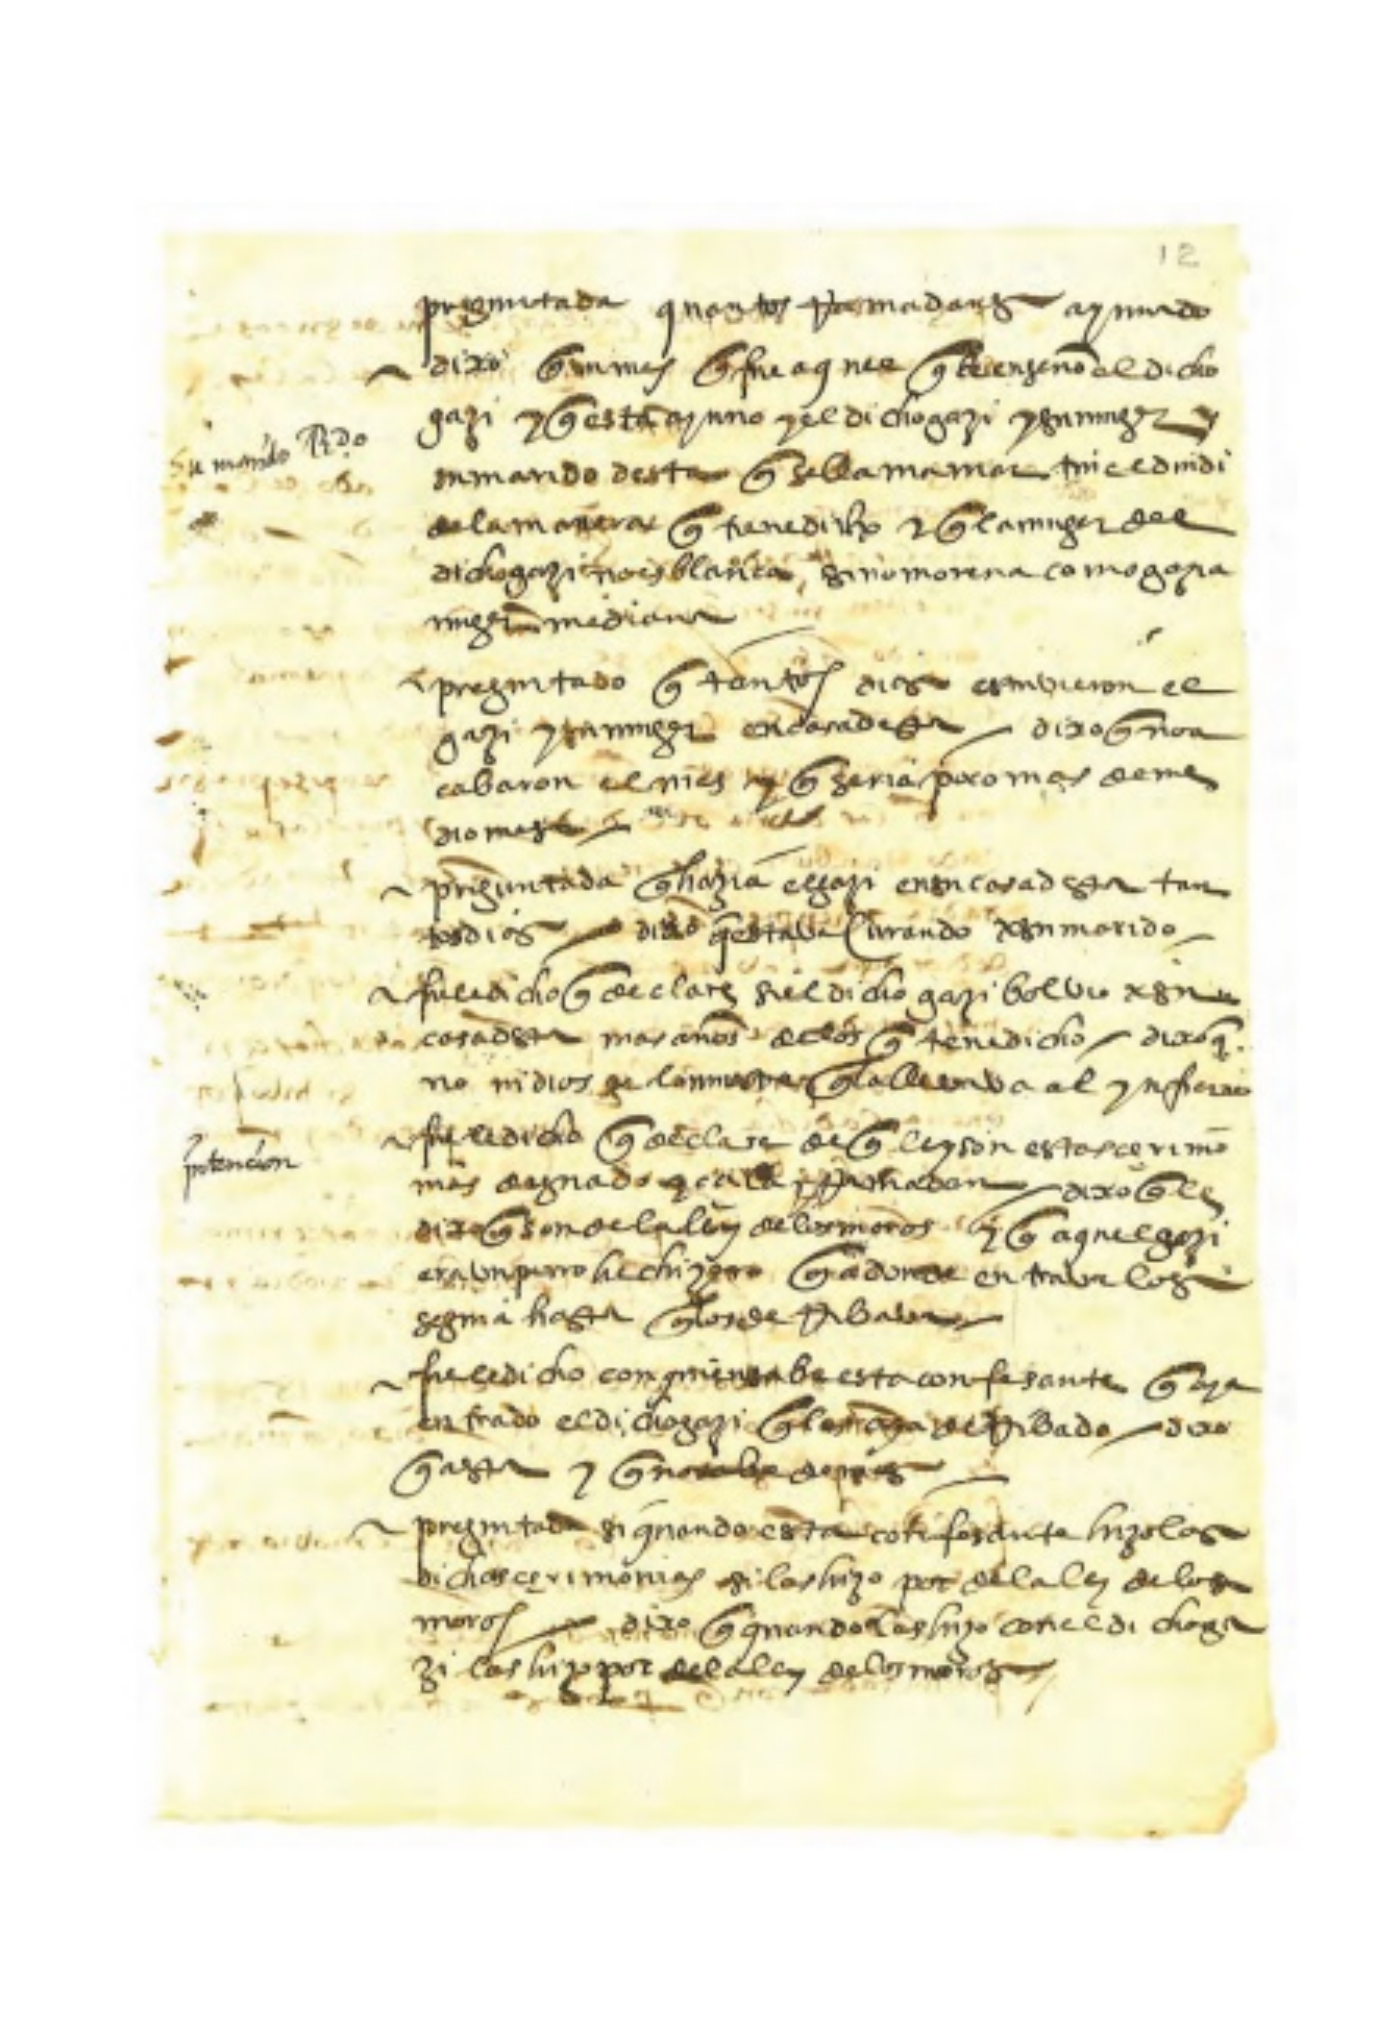 12
preguntada quantos Ramadanes ayunado
dixo q un mes q fue aquel q le enseño el dicho
gazi y q esta ayuno y el dicho gazi y su muger y
Su marido Rdo
su marido desta q se llamama el
de la manera q tiene dicho y q la muger del
dicho gazi no es blanca, sino morena como gazia
muger mediana
preguntado q tantos dias estuvieron el
gazi y su muger en casa desta / dixo q no a
cabaron el mes y q seria poco mas de me
dio mes /
preguntada q hazia el gazi en su casa desta tan
tos dias / dixo q estava curando a su marido
fuele dicho q declare si el dicho gazi bolvio a su
casa desta mas años de los q tiene dicho / dixo q
no ni dios se lo muestre q la lleva al ynfierno
yntencion
fuele dicho q declare de q ley son estas cerimo
nias de guado y çala y Ramadan / dixo q le
dixo q son de la ley de los moros y q aquel gazi
era un perro hechizero q adonde entrava los
seguia hasta q los derribava /
fuele dicho con quien sabe esta confesante q aya
entrado el dicho gazi q los aya derribado / dixo
q a esta y q no sabe de mas /
preguntada si quando esta confesante hizo las
dichas cerimonias si las hizo por de la ley de los
moros / dixo q quando las hizo con el dicho ga
zi las hizo por de la ley de los moros /